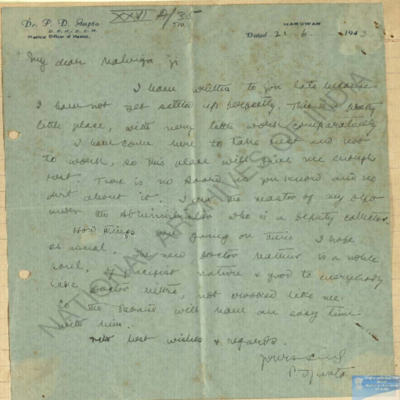 XXVI A/
Dr. P. D. Gupta
Medical Officer of Health.
HARDWAR
Dated 21 . 6 . 1943
My dear Malaviya ji
I have written to you late because
I have not yet settled up properly. This is pretty
little place, with very little work comparatively
I have come here to take rest and not
to work, so this place will give me enough
rest. There is no Board as you know and no
dirt about it. I am the master of my
under the Administrator who is a Deputy Collector.
How things are going on there I hope
as usual. new doctor Mathur is a noble
soul, nature & good to everybody
like doctor Mitra, not crooked like me.
So the Board will have an easy time
with him.
With best wishes & regards.
Yours
P D Gupta
NATIONAL ARCHIVES OF INDIA